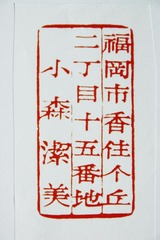 福岡市香住个丘
二丁目十五番地
小森潔美